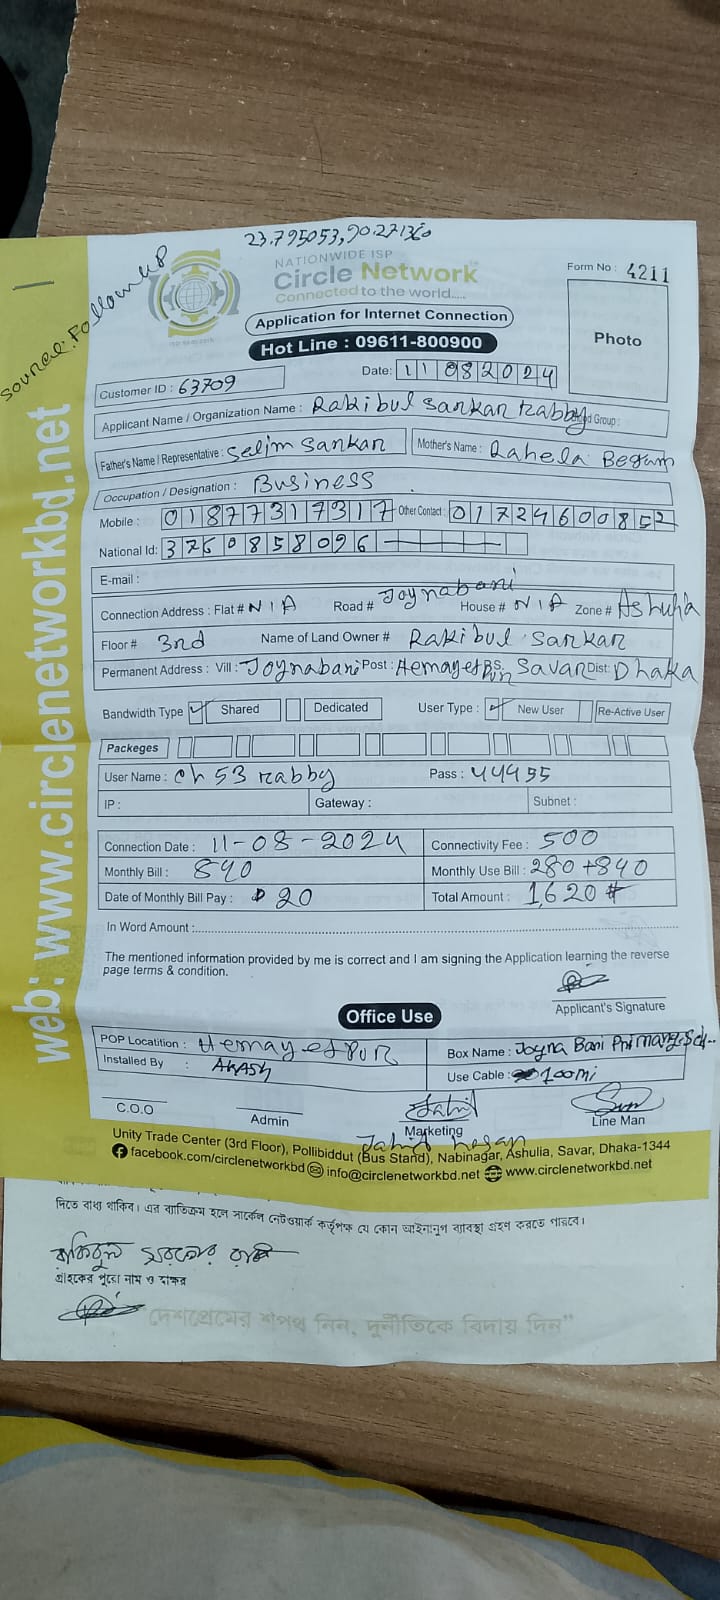 23.795053, 90.271360
Source: Followup
NATIONWIDE ISP
Circle Network™
Connected to the world.....
Form No : 4211
Application for Internet Connection
Hot Line : 09611-800900
Photo
Date: 11 08 2024
Customer ID : 63709
Applicant Name / Organization Name : Rakibul Sarkar Rabby Blood Group :
Father's Name / Representative : Selim Sarkar Mother's Name : Rahela Begum
Occupation / Designation : Business
Mobile : 01877317317 Other Contact : 01724600852
National Id: 3760858096
E-mail :
Connection Address : Flat # N/A Road # Joynabari House # N/A Zone # Ashulia
Floor # 3rd Name of Land Owner # Rakibul Sarkar
Permanent Address : Vill : Joynabari Post : Hemayetpur P.S. Savar Dist: Dhaka
Bandwidth Type Shared Dedicated User Type : New User Re-Active User
Packeges
User Name : ch 53 rabby Pass : 44455
IP : Gateway : Subnet :
Connection Date : 11-08-2024 Connectivity Fee : 500
Monthly Bill : 840 Monthly Use Bill : 280+840
Date of Monthly Bill Pay : 20 Total Amount : 1,620 #
In Word Amount :
The mentioned information provided by me is correct and I am signing the Application learning the reverse
page terms & condition.
Applicant's Signature
Office Use
POP Locatition : Hemayetpur Box Name : Joyna Bari
Installed By : AKASH Use Cable : 100mi
C.O.O Admin Marketing Line Man
Unity Trade Center (3rd Floor), Pollibiddut (Bus Stand), Nabinagar, Ashulia, Savar, Dhaka-1344
facebook.com/circlenetworkbd info@circlenetworkbd.net www.circlenetworkbd.net
web: www.circlenetworkbd.net
দিতে বাধ্য থাকিব। এর ব্যতিক্রম হলে সার্কেল নেটওয়ার্ক কর্তৃপক্ষ যে কোন আইনানুগ ব্যবস্থা গ্রহণ করতে পারবে।
রাকিবুল সরকার
গ্রাহকের পুরো নাম ও স্বাক্ষর
"দেশপ্রেমের শপথ নিন, দুর্নীতিকে বিদায় দিন"